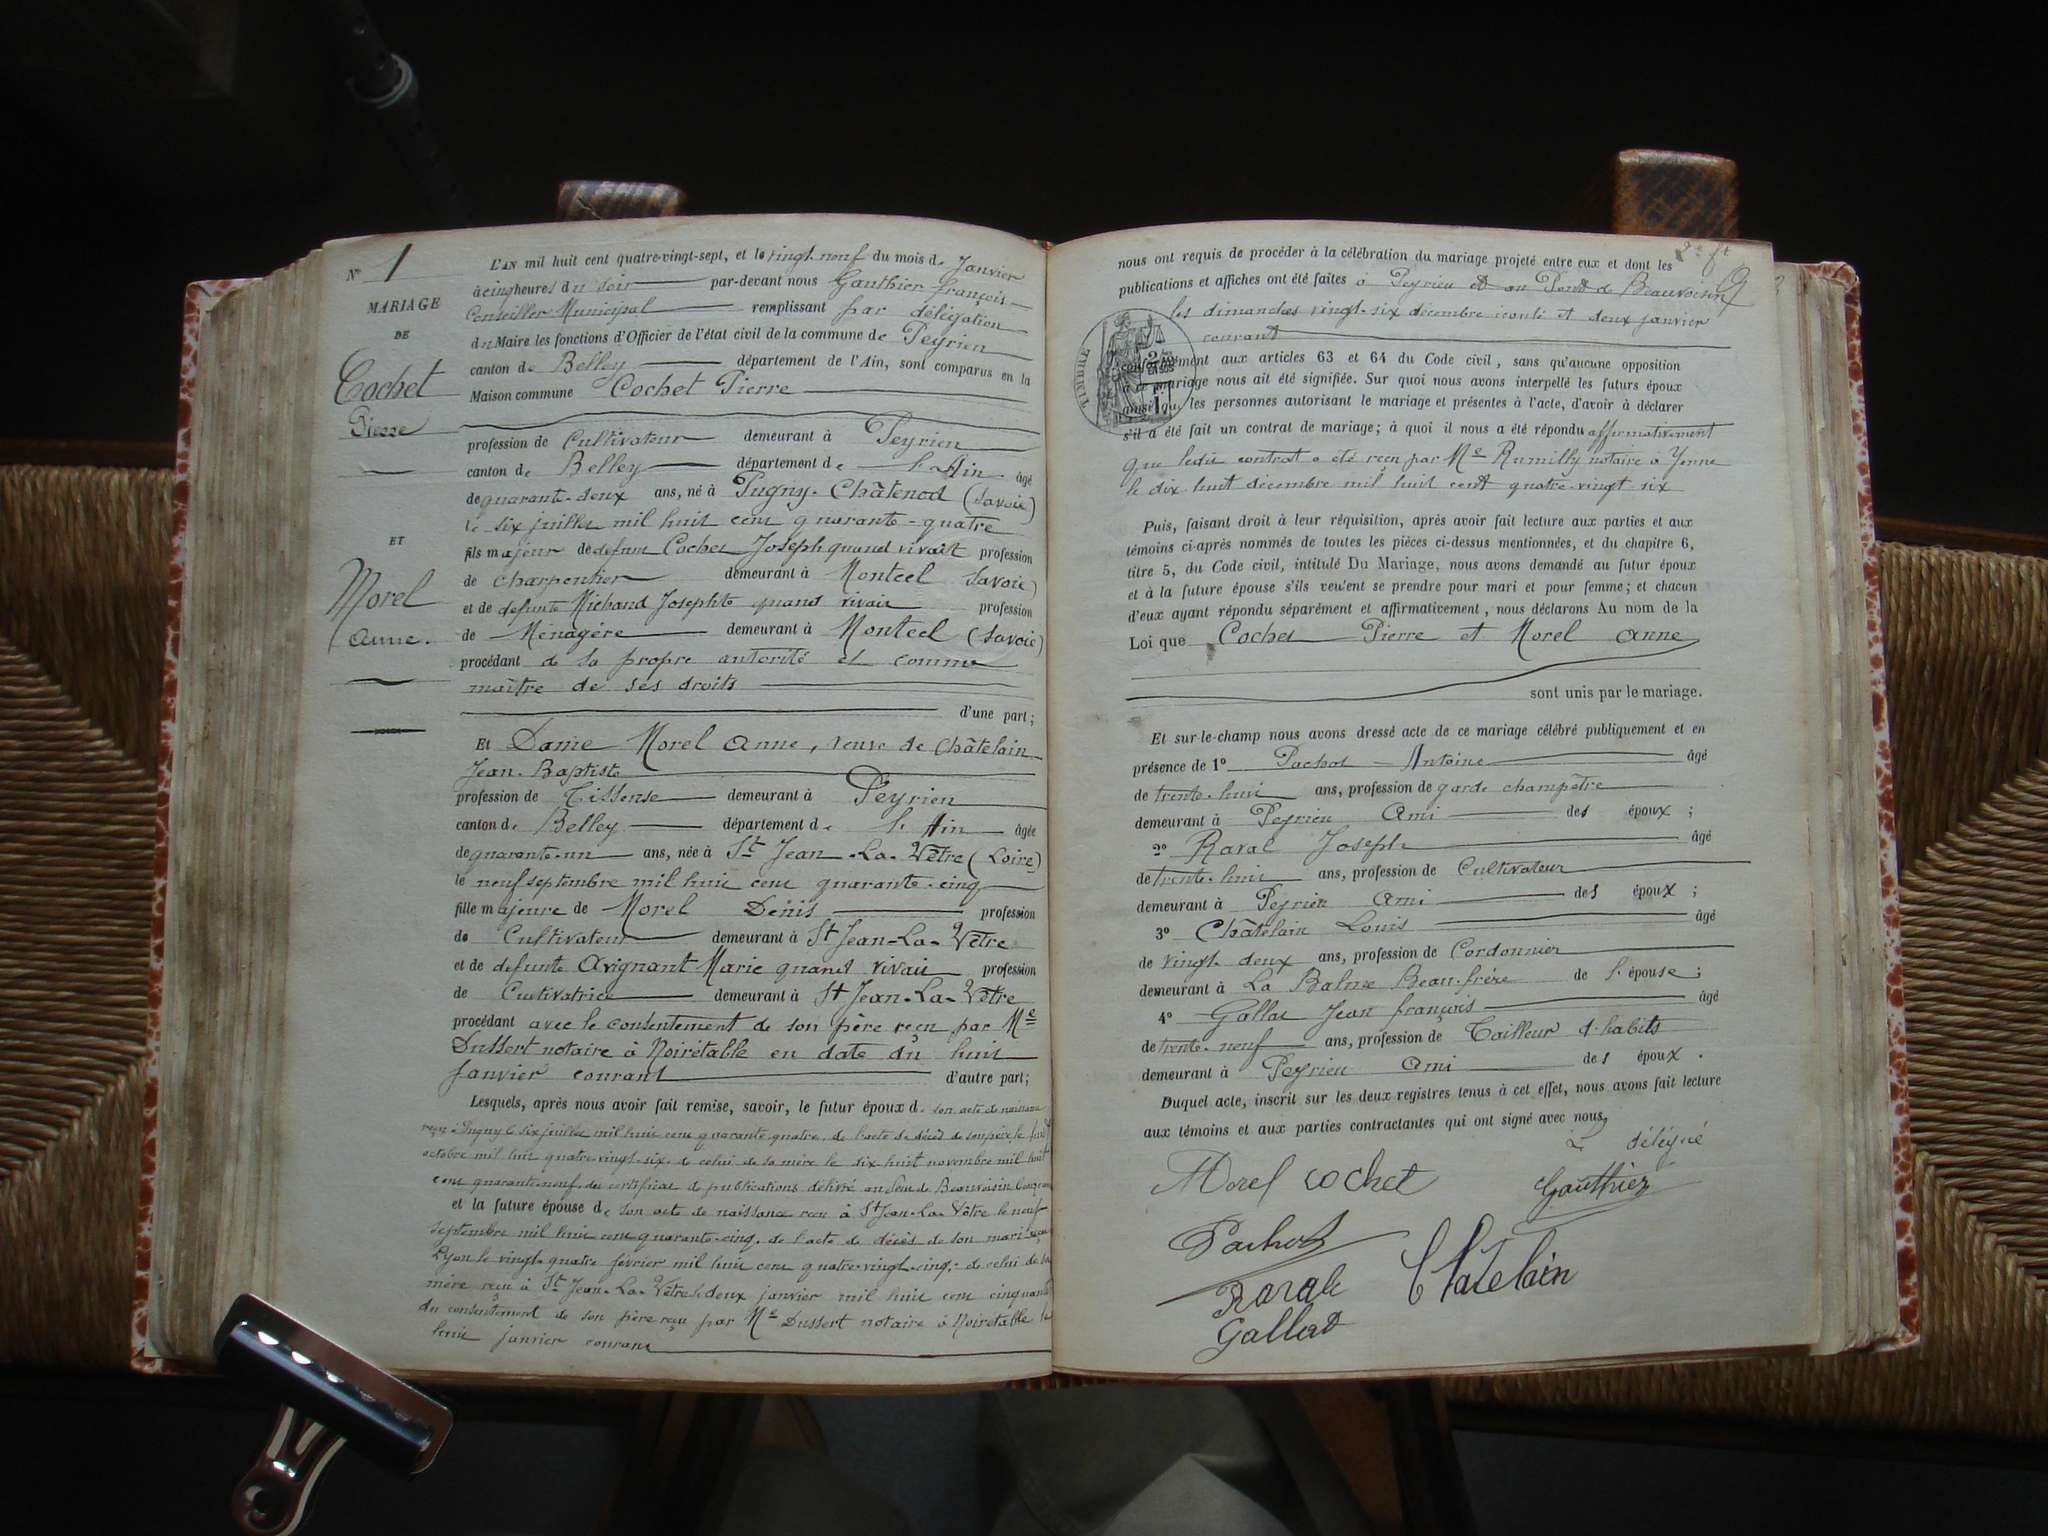 N° 1
MARIAGE
DE
Cochet
Pierre
ET
Morel
Anne.
L'AN mil huit cent quatre-vingt-sept, et le vingt-neuf du mois de Janvier
à cinq heures du soir par-devant nous Gauthier françois
Conseiller Municipal remplissant par délégation
du Maire les fonctions d'Officier de l'état civil de la commune de Peyrieu
canton de Belley département de l'Ain, sont comparus en la
Maison commune Cochet Pierre
profession de Cultivateur demeurant à Peyrieu
canton de Belley département de l'Ain âgé
de quarante-deux ans, né à Pugny-Châtenod (Savoie)
le six juillet mil huit cent quarante-quatre
fils majeur de defunt Cochet Joseph quand vivait profession
de charpentier demeurant à Montcel Savoie)
et de defunte Michaud Josephte quand vivait profession
de Ménagère demeurant à Montcel (Savoie)
procédant de sa propre autorité et comme
maître de ses droits
d'une part;
Et Dame Morel Anne, veuve de Châtelain
Jean-Baptiste
profession de Tisseuse demeurant à Peyrieu
canton de Belley département de l'Ain âgée
de quarante-un ans, née à St Jean-La-Vêtre (Loire)
le neuf septembre mil huit cent quarante-cinq
fille majeure de Morel Denis profession
de Cultivateur demeurant à St Jean-La-Vêtre
et de defunte Avignant Marie quand vivait profession
de Cultivatrice demeurant à St Jean-La-Vêtre
procédant avec le consentement de son père reçu par Me
Dussert notaire à Noirétable en date du huit
Janvier courant d'autre part;
Lesquels, après nous avoir fait remise, savoir, le futur époux de son acte de naissance
reçu à Pugny le six juillet mil huit cent quarante quatre, de l'acte de décès de son père le
octobre mil huit quatre-vingt-six, de celui de sa mère le six huit novembre mil huit
cent quarante-neuf, du certificat de publications délivré au de Beauvoisin
et la future épouse de son acte de naissance reçu à St Jean-La-Vêtre le neuf
septembre mil huit cent quarante-cinq, de l'acte de décès de son mari reçu
Lyon le vingt-quatre février mil huit cent quatre-vingt-cinq, de celui de sa
mère reçu à St Jean-La-Vêtre le deux janvier mil huit cent cinquante
du consentement de son père reçu par Me Dussert notaire à Noirétable le
huit janvier courant
nous ont requis de procéder à la célébration du mariage projeté entre eux et dont les
publications et affiches ont été faites à Peyrieu et au Pont de Beauvoisin
les dimanches vingt-six décembre écoulé et deux janvier
courant
TIMBRE
conformément aux articles 63 et 64 du Code civil, sans qu'aucune opposition
à ce mariage nous ait été signifiée. Sur quoi nous avons interpellé les futurs époux
ainsi que les personnes autorisant le mariage et présentes à l'acte, d'avoir à déclarer
s'il a été fait un contrat de mariage; à quoi il nous a été répondu affirmativement
que ledit contrat a été reçu par Me Rumilly notaire à Yenne
le dix huit décembre mil huit cent quatre-vingt-six
Puis, faisant droit à leur réquisition, après avoir fait lecture aux parties et aux
témoins ci-après nommés de toutes les pièces ci-dessus mentionnées, et du chapitre 6,
titre 5, du Code civil, intitulé Du Mariage, nous avons demandé au futur époux
et à la future épouse s'ils veulent se prendre pour mari et pour femme; et chacun
d'eux ayant répondu séparément et affirmativement, nous déclarons Au nom de la
Loi que Cochet Pierre et Morel Anne
sont unis par le mariage.
Et sur-le-champ nous avons dressé acte de ce mariage célébré publiquement et en
présence de 1° Pachot Antoine âgé
de trente-huit ans, profession de garde champêtre
demeurant à Peyrieu Ami des époux;
2° Raval Joseph âgé
de trente-huit ans, profession de Cultivateur
demeurant à Peyrieu Ami des époux;
3° Châtelain Louis âgé
de vingt-deux ans, profession de Cordonnier
demeurant à La Balme Beau-frère de l'épouse;
4° Gallat Jean françois âgé
de trente-neuf ans, profession de Tailleur d'habits
demeurant à Peyrieu Ami des époux.
Duquel acte, inscrit sur les deux registres tenus à cet effet, nous avons fait lecture
aux témoins et aux parties contractantes qui ont signé avec nous,
délégué
Morel cochet Gauthier
Pachot
Chatelain
Raval
Gallat